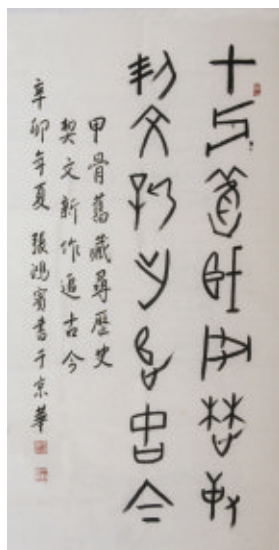 甲骨舊藏尋歷史
契文新作追古今
甲骨舊藏尋歷史
契文新作追古今
辛卯年夏 張鴻賓書于京華